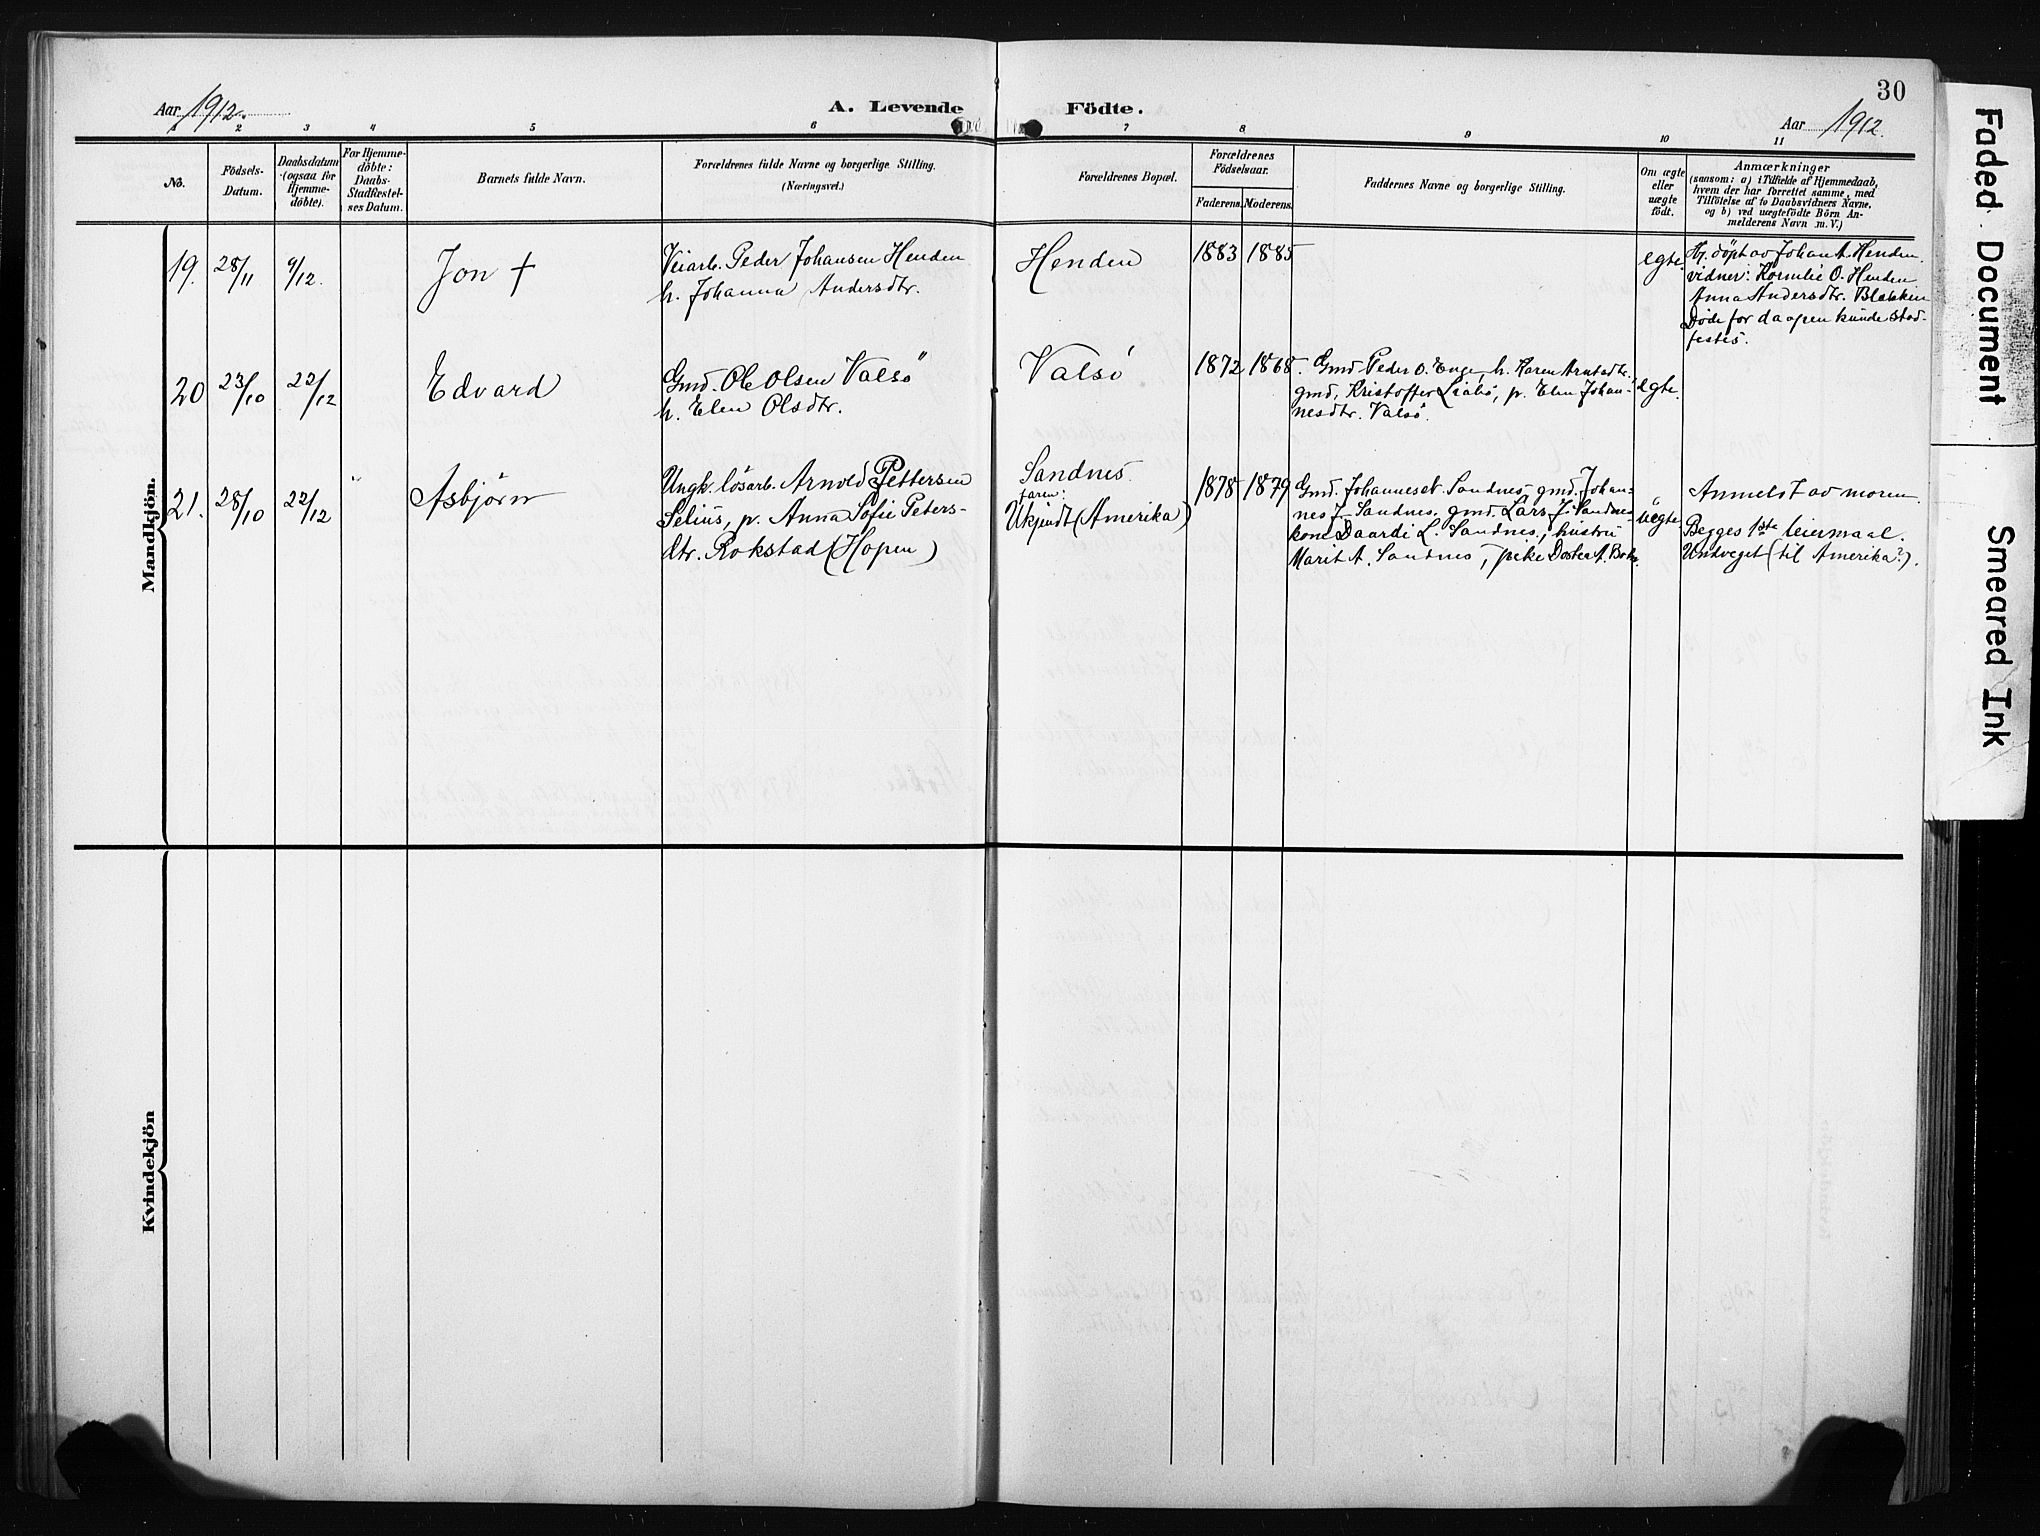 30
Aar 1912.
A. Levende Födte.
Aar 1912.
1 2 3 4 5 6 7 8 9 10 11
No.
Födsels-
Datum.
Daabsdatum
(ogsaa for
Hjemme-
döbte).
For Hjemme-
döbte:
Daabs-
Stadfæstel-
ses Datum.
Barnets fulde Navn.
Forældrenes fulde Navne og borgerlige Stilling.
(Næringsvei.)
Forældrenes Bopæl.
Forældrenes
Födselsaar.
Faderens. Moderens.
Faddernes Navne og borgerlige Stilling.
Om ægte
eller
uægte
födt.
Anmærkninger
(saasom: a) i Tilfælde af Hjemmedaab,
hvem der har forrettet samme, med
Tilföielse af to Daabsvidners Navne,
og b) ved uægtefödte Börn An-
melderens Navn m. V.)
Mandkjön.
19. 28/11 9/12. Jon †
Veiarb. Peder Johansen Henden
h. Johanna Andersdtr.
Henden 1883 1885 egte
Hj. döpt av Johan A. Henden.
vidner: Kornelie O. Henden
Anna Andersdtr. Blekken
Döde før daapen kunde stad-
festes.
20 23/10 22/12 Edvard
Gmd. Ole Olsen Valsö
h. Elen Olsdtr.
Valsö 1872 1868.
Gmd. Peder O. Enge, h. Karen Arntsdtr.
gmd. Kristoffer Liabö, p. Elen Johan-
nesdtr. Valsö.
egte.
21. 28/10 22/12 " Asbjörn
Ungk. lösarb. Arnold Pettersen
Selius, p. Anna Sofie Peters-
dtr. Rokstad (Hopen)
Sandnes
faren:
Ukjendt (Amerika)
1878 1879
Gmd. Johannes Sandnes, gmd. Johan-
nes J. Sandnes, gmd. Lars J. Sandnes
kone Baardi L. Sandnes, hustru
Marit A. Sandnes, pike Dortea A.
uegte
Anmeldt av moren.
Begges 1ste leiermaal.
Undveget (til Amerika?).
Kvindekjön
Faded Document
Smeared Ink